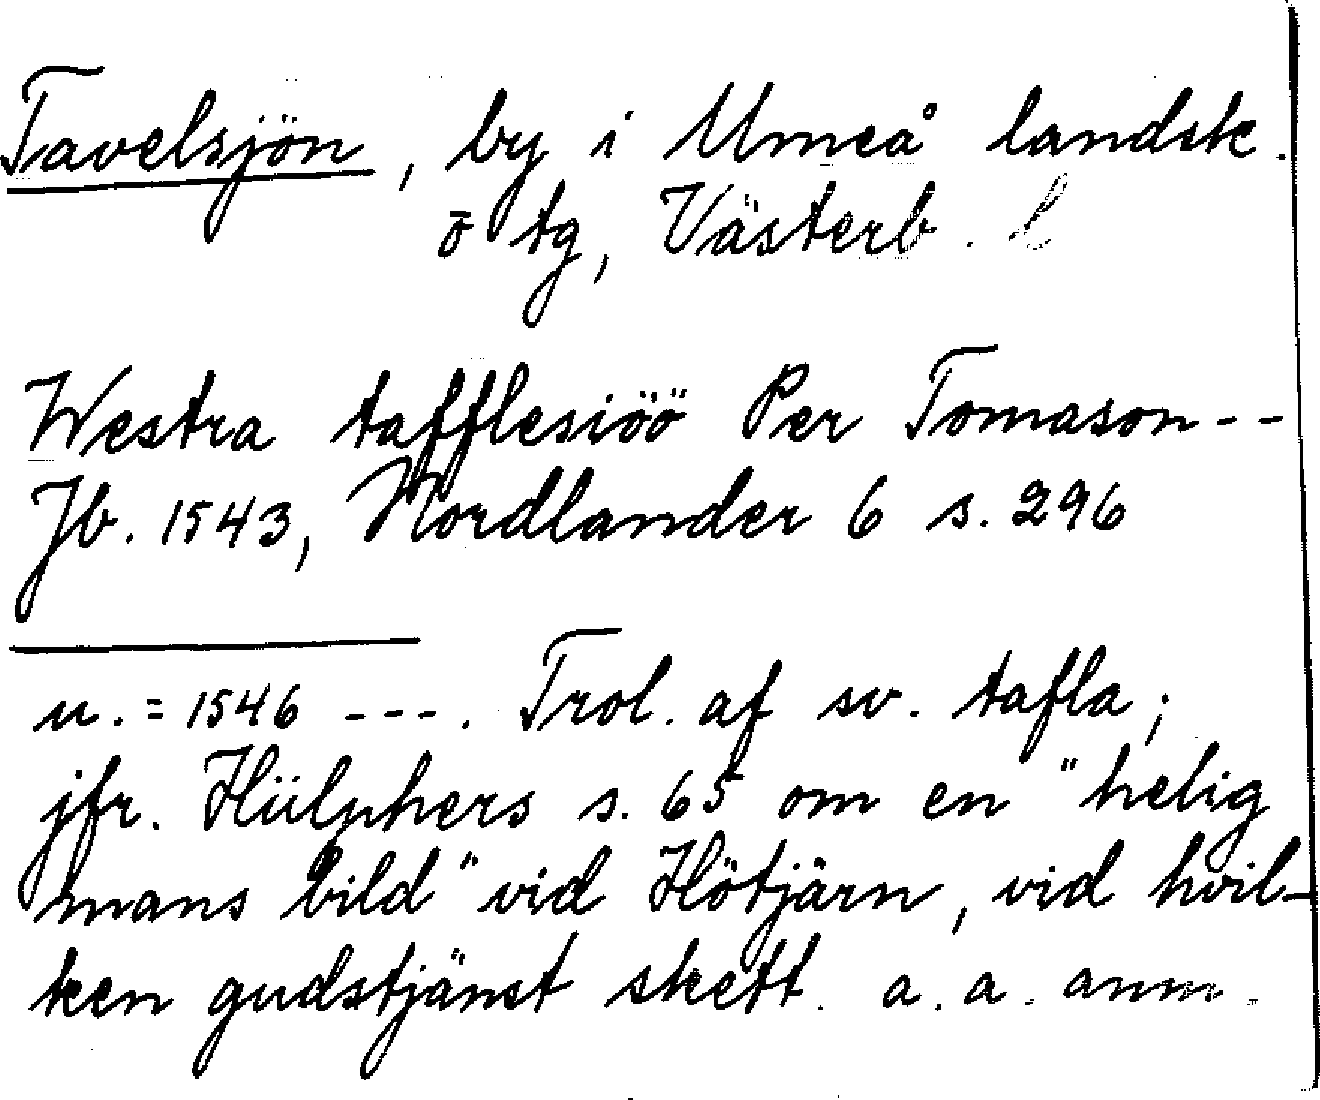 Tavelsjön, by i Umeå landsk.
o tg, Västerb. l
Westra tafflesiöö Per Tomason - -
Jb. 1543, Nordlander 6 s. 296
n. = 1546 - - -. Trol. af sv. tafla;
jfr. Hülphers s. 65 om en "helig
mans bild" vid Hötjärn, vid hvil-
ken gudstjänst skett. a. a. anm.